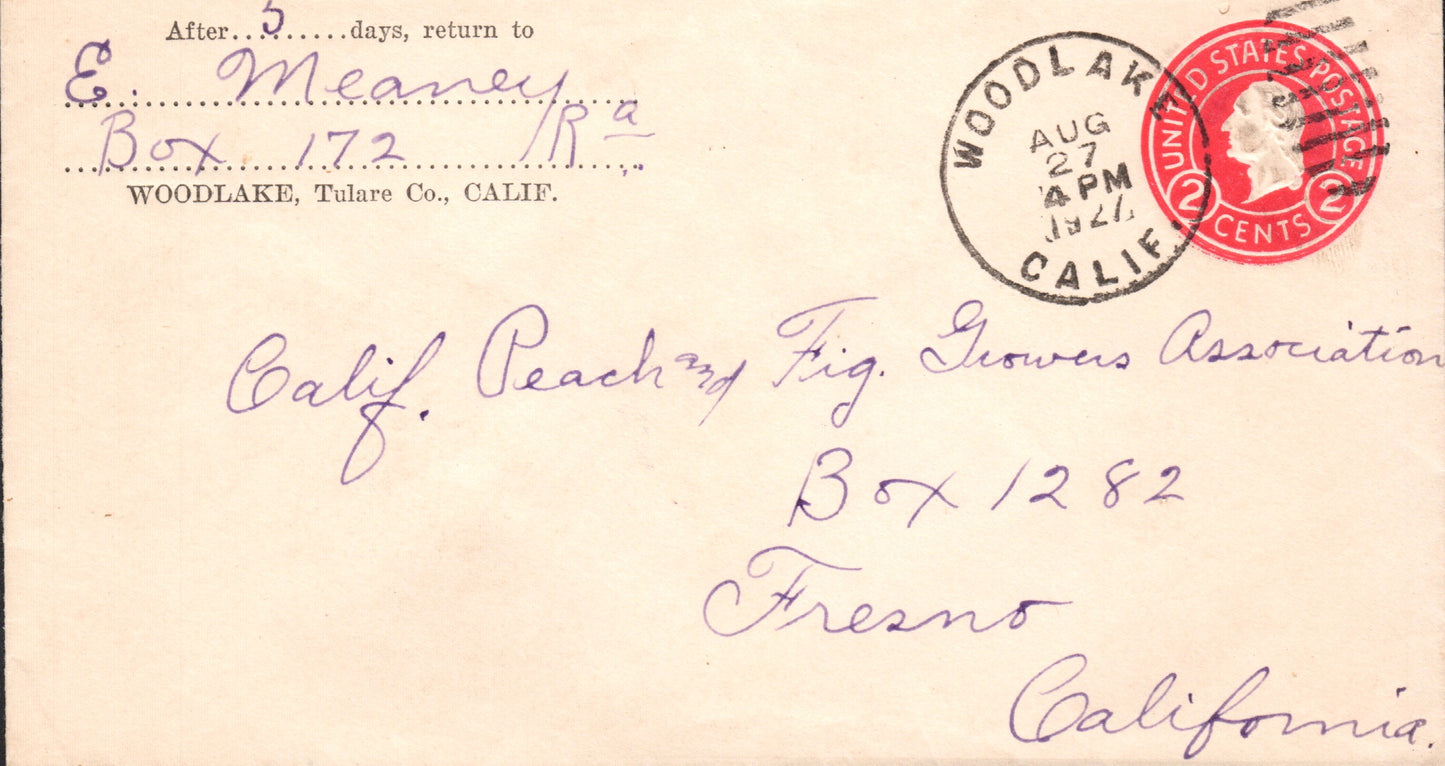 After..5.......days, return to
E. Meaney
Box 172 Ra
WOODLAKE, Tulare Co., CALIF.
WOODLAKE
AUG
27
4 PM
1927
CALIF.
UNITED STATES POSTAGE
2 CENTS 2
Calif. Peach and Fig. Growers Association
Box 1282
Fresno
California.